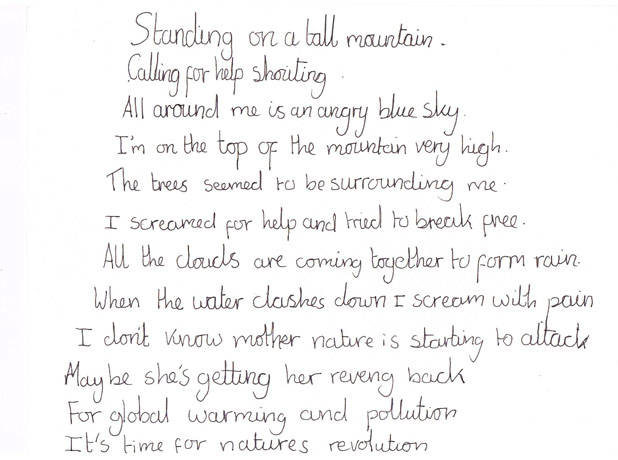 Standing on a tall mountain.
Calling for help shouting.
All around me is an angry blue sky.
I'm on the top of the mountain very high.
The trees seemed to be surrounding me.
I screamed for help and tried to break free.
All the clouds are coming together to form rain.
When the water clashes down I scream with pain
I don't know mother nature is starting to attack
Maybe she's getting her reveng back
For global warming and pollution
It's time for natures revolution